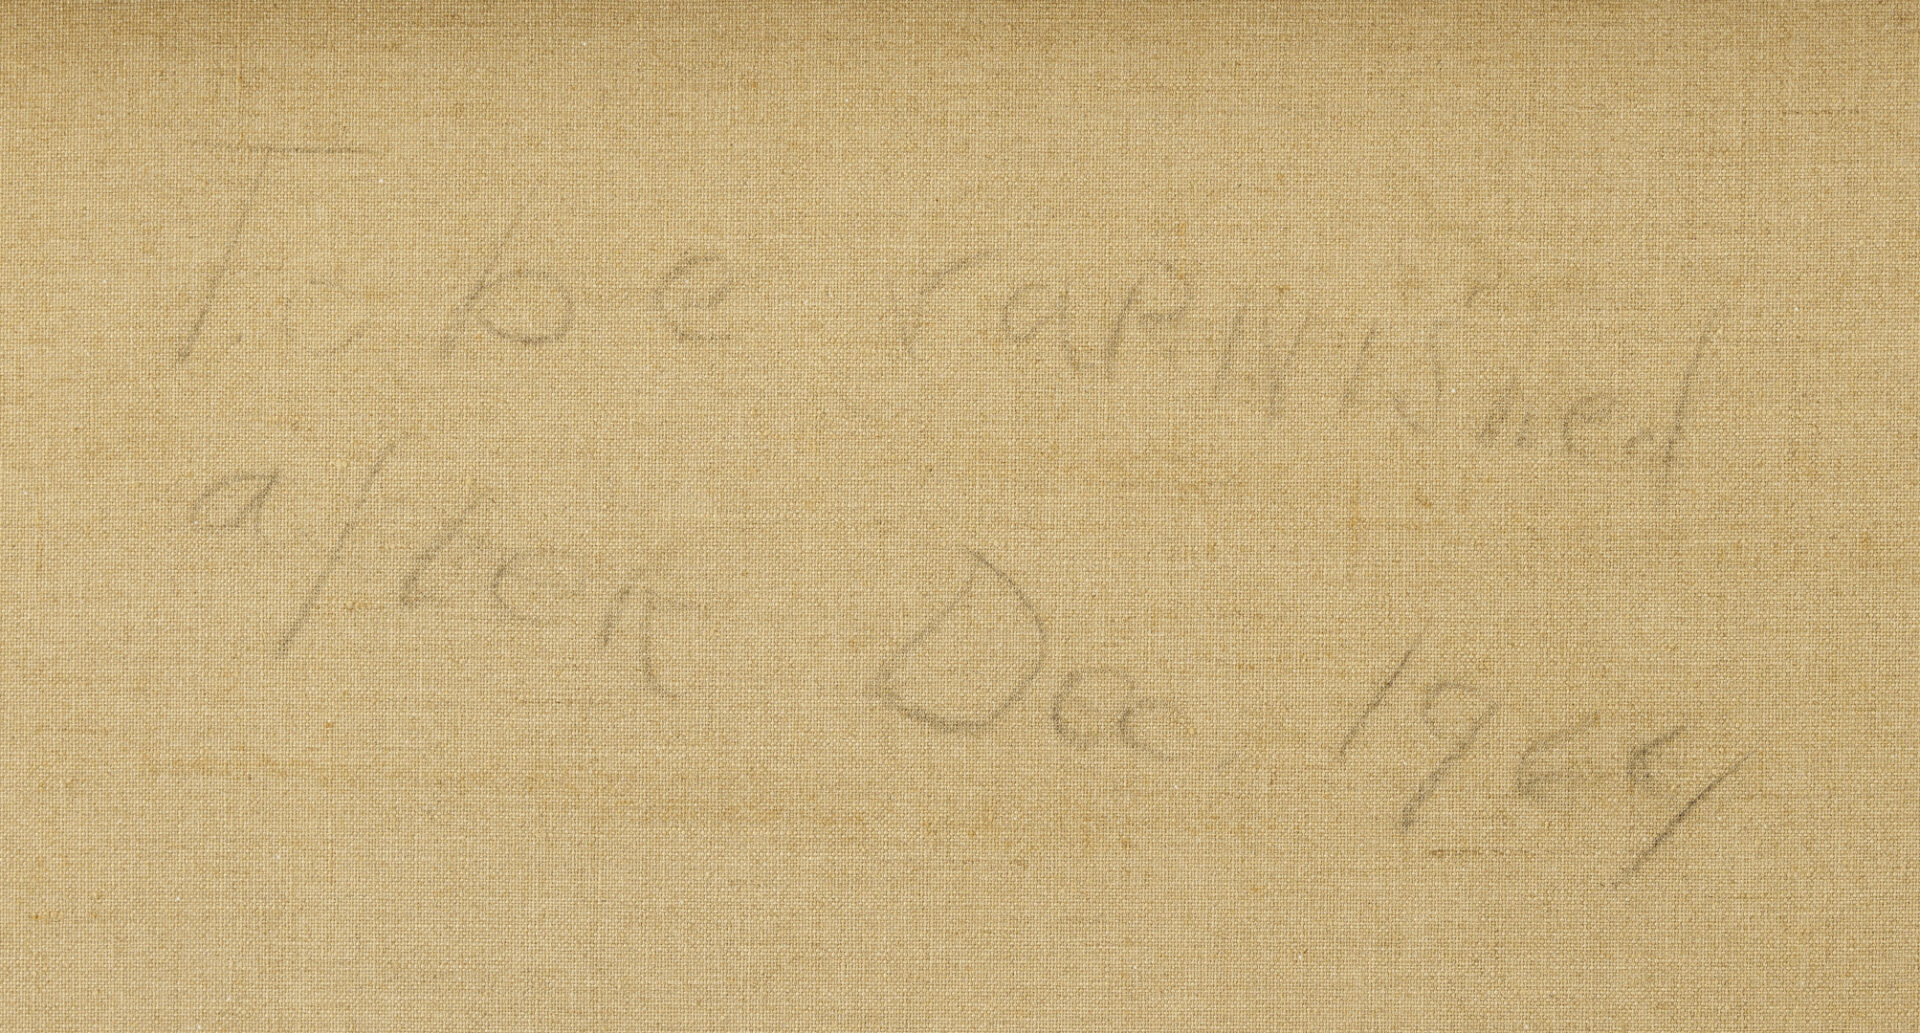 To be varnished
after Dec. 1955